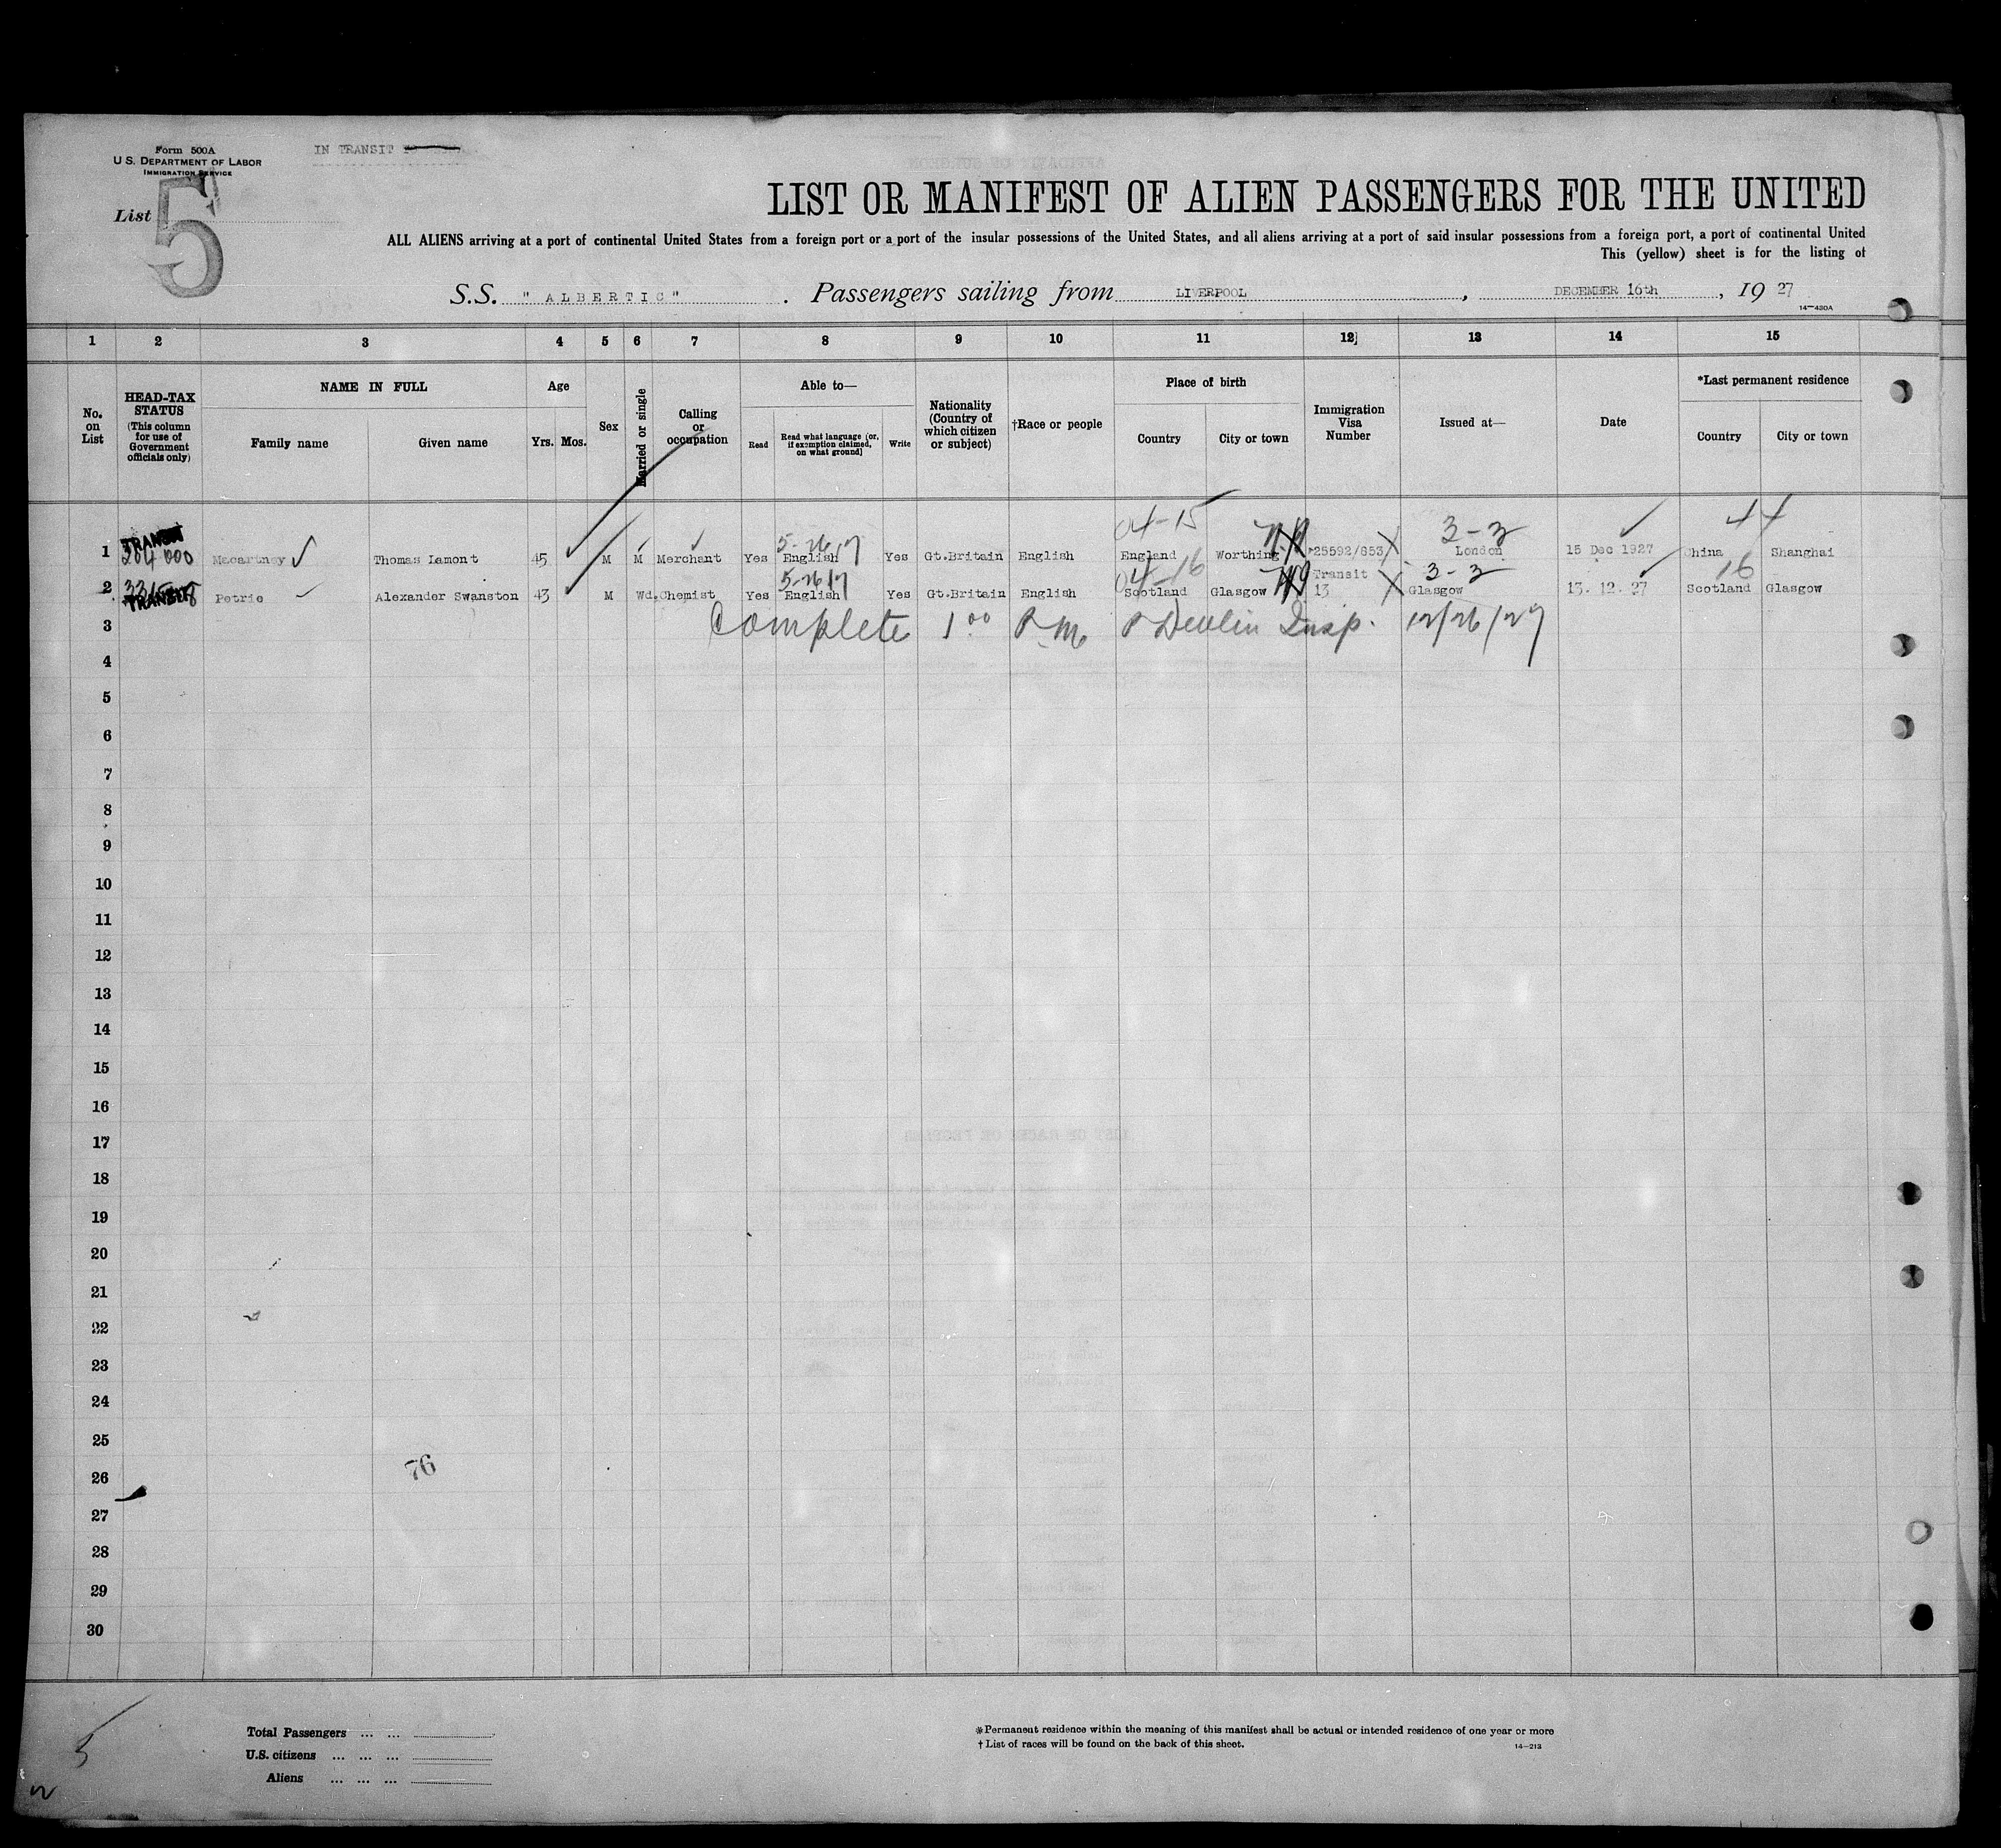 Form 500A
U.S. DEPARTMENT OF LABOR
IMMIGRATION SERVICE
IN TRANSIT
List 5
LIST OR MANIFEST OF ALIEN PASSENGERS FOR THE UNITED
ALL ALIENS arriving at a port of continental United States from a foreign port or a port of the insular possessions of the United States, and all aliens arriving at a port of said insular possessions from a foreign port, a port of continental United
This (yellow) sheet is for the listing of
S.S. "ALBERTIC". Passengers sailing from LIVERPOOL, DECEMBER 16th, 19 27
14—430A
1 2 3 4 5 6 7 8 9 10 11 12 13 14 15
No. on List
HEAD-TAX STATUS
(This column for use of Government officials only)
NAME IN FULL
Family name Given name
Age
Yrs. Mos.
Sex
Married or single
Calling or occupation
Able to—
Read
Read what language (or, if exemption claimed, on what ground)
Write
Nationality (Country of which citizen or subject)
†Race or people
Place of birth
Country City or town
Immigration Visa Number
Issued at—
Date
*Last permanent residence
Country City or town
04-15 3-3 44
TRANSIT 5-26/7
1 204000 Macartney Thomas Lamont 45 M M Merchant Yes English Yes Gt.Britain English England Worthing 25592/853 London 15 Dec 1927 China Shanghai
5-26/7 04-16 Transit 3-3 16
2 TRANSIT Petrie Alexander Swanston 43 M Wd. Chemist Yes English Yes Gt.Britain English Scotland Glasgow 13 Glasgow 13.12.27 Scotland Glasgow
3 Complete 1 00 P.M. P Devlin Insp. 12/26/27
4
5
6
7
8
9
10
11
12
13
14
15
16
17
18
19
20
21
22
23
24
25
76
26
27
28
29
30
5
Total Passengers ... ...
U.S. citizens ... ... ...
Aliens ... ... ...
*Permanent residence within the meaning of this manifest shall be actual or intended residence of one year or more
†List of races will be found on the back of this sheet.
14—213